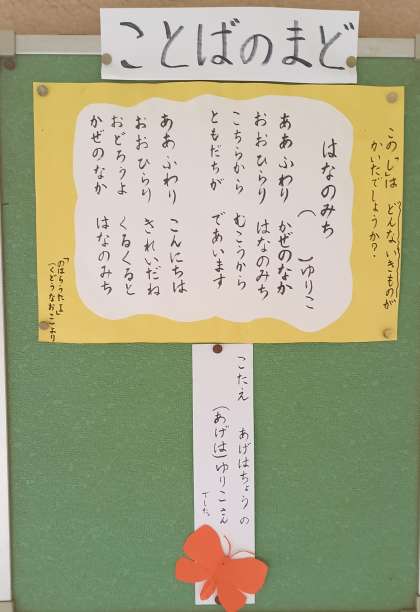 ことばのまど
この「し」は どんないきものが
かいたでしょうか？
はなのみち
（　　）ゆりこ
ああ ふわり かぜのなか
おおひらり はなのみち
こちらから むこうから
ともだちが であいます
ああ ふわり こんにちは
おおひらり きれいだね
おどろうよ くるくると
かぜのなか はなのみち
「のはらうたⅠ」
（くどうなおこ）より
こたえ あげはちょうの
（あげは）ゆりこさん
でした。